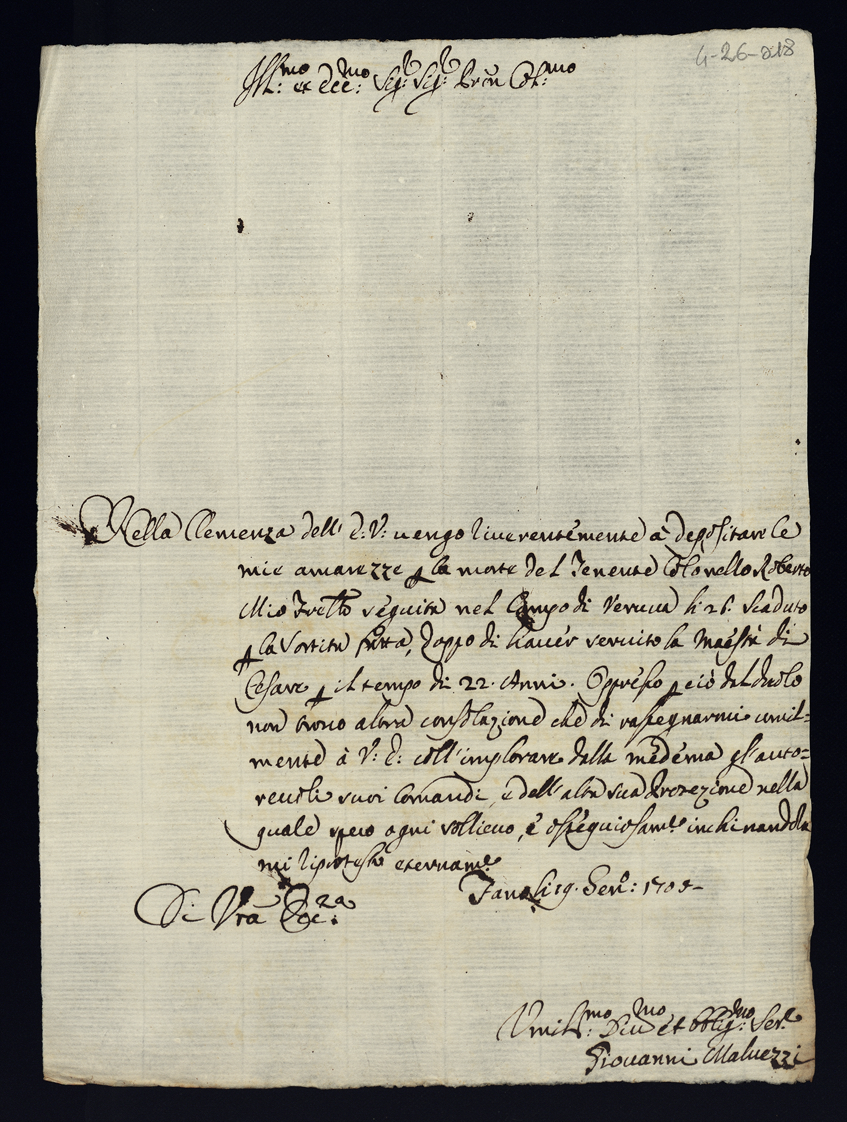 4-26-218
Ill:mo et Ecc:mo Sig:r Sig:r Prõn Col:mo
Nella Clemenza dell' E: V: uengo riuerentemente à depositare le
mie amarezze p la morte del Tenente Colonello Roberto
Mio Frēllo seguita nel Campo di Verrua li 26. scaduto
p la sortita fatta, doppo di hauer seruito la Maestà di
Cesare p il tempo di 22. Anni. Oppresso p ciò dal duolo
non trouo altra consolazione che di rassegnarmi umil-
mente à V: E: coll' implorare dalla medema gl' auto-
reuoli suoi Comandi, e dell' alta sua Protezione nella
quale spero ogni sollieuo, e ossequiosam.te inchinandola
mi riprotesto eternam.te
Di Vrã Ecc:za
li 19. Gen: 1705
Vmil:mo Diu:mo et oblig:mo Ser.re
Giouanni Maluezzi